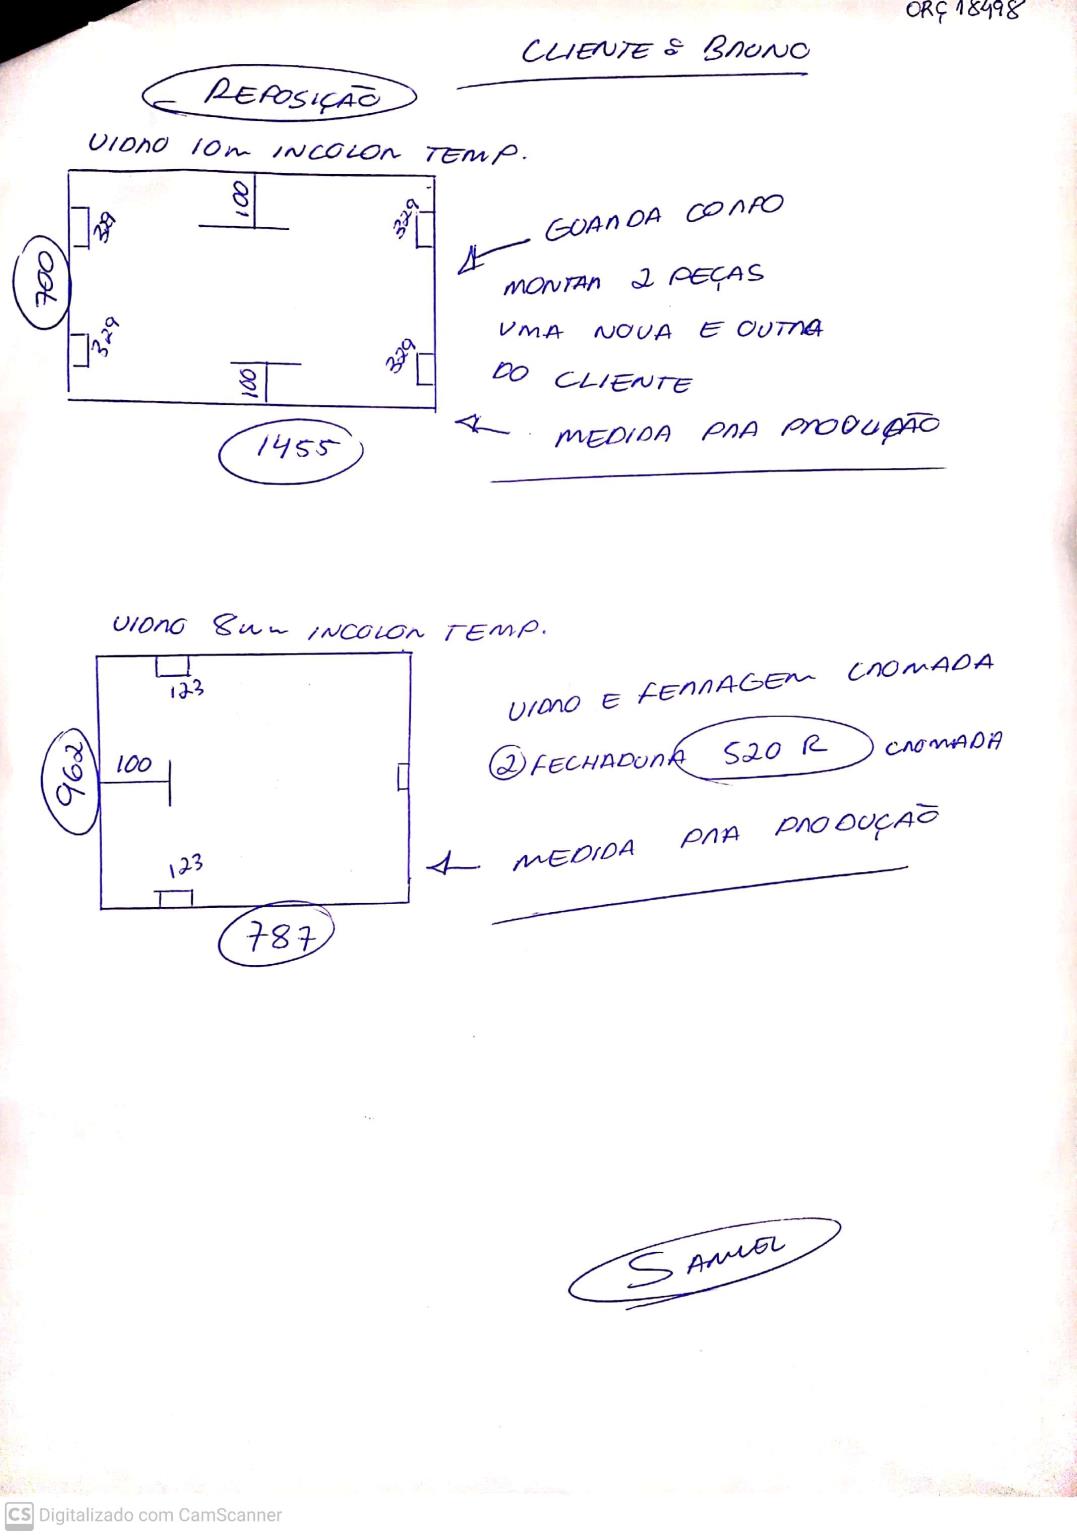 ORÇ 18498
CLIENTE: BRUNO
REPOSIÇÃO
VIDRO 10m INCOLOR TEMP.
100
329
329
700
329
329
100
1455
GUARDA CORPO
MONTAR 2 PEÇAS
UMA NOVA E OUTRA
DO CLIENTE
MEDIDA PRA PRODUÇÃO
VIDRO 8mm INCOLOR TEMP.
123
962
100
123
787
VIDRO E FERRAGEM CROMADA
2 FECHADURA 520 R CROMADA
MEDIDA PRA PRODUÇÃO
SAMUEL
CS Digitalizado com CamScanner